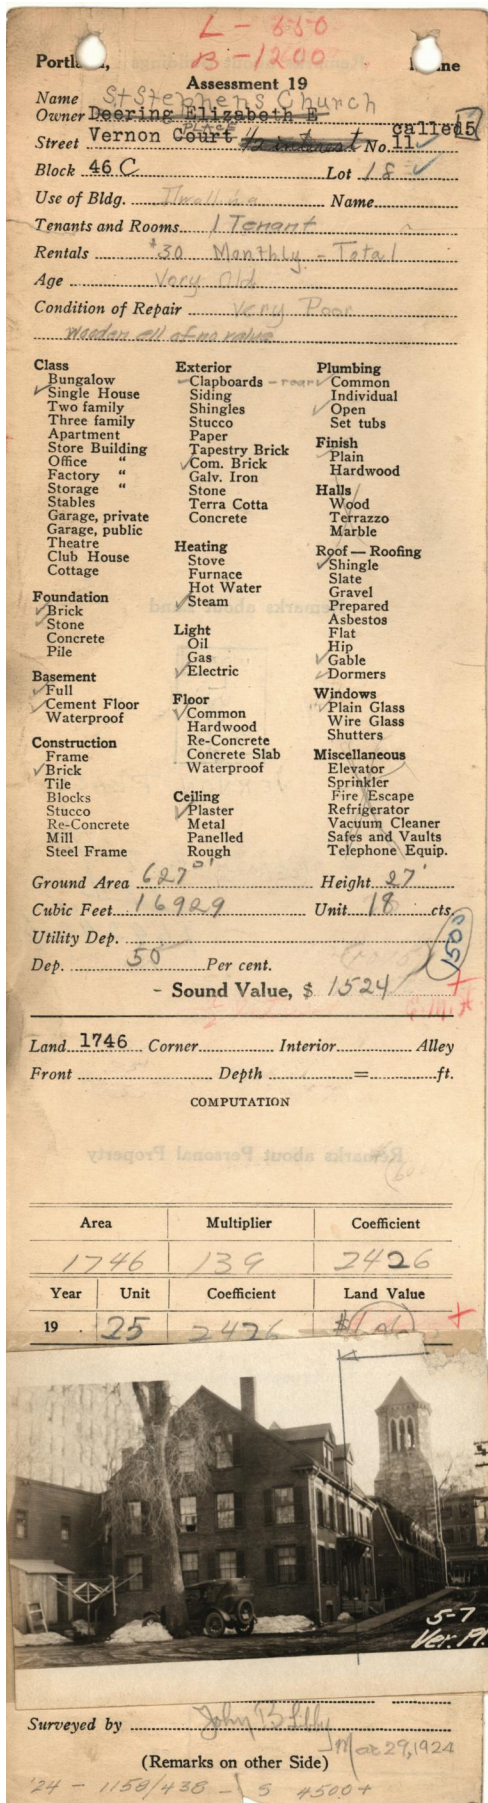 L - 550
B - 1200
Portland, Maine
Assessment 19
Name St Stephens Church
Owner Deering Elizabeth E
Street Vernon Court PLACE 1/2 interest No. 11 called 5
Block 46 C Lot 18
Use of Bldg. Dwelling Name
Tenants and Rooms 1 Tenant
Rentals $30 Monthly - Total
Age Very Old
Condition of Repair Very Poor
Wooden ell of no value
Class
Bungalow
Single House
Two family
Three family
Apartment
Store Building
Office "
Factory "
Storage "
Stables
Garage, private
Garage, public
Theatre
Club House
Cottage
Foundation
Brick
Stone
Concrete
Pile
Basement
Full
Cement Floor
Waterproof
Construction
Frame
Brick
Tile
Blocks
Stucco
Re-Concrete
Mill
Steel Frame
Exterior
Clapboards - rear
Siding
Shingles
Stucco
Paper
Tapestry Brick
Com. Brick
Galv. Iron
Stone
Terra Cotta
Concrete
Heating
Stove
Furnace
Hot Water
Steam
Light
Oil
Gas
Electric
Floor
Common
Hardwood
Re-Concrete
Concrete Slab
Waterproof
Ceiling
Plaster
Metal
Panelled
Rough
Plumbing
Common
Individual
Open
Set tubs
Finish
Plain
Hardwood
Halls
Wood
Terrazzo
Marble
Roof — Roofing
Shingle
Slate
Gravel
Prepared
Asbestos
Flat
Hip
Gable
Dormers
Windows
Plain Glass
Wire Glass
Shutters
Miscellaneous
Elevator
Sprinkler
Fire Escape
Refrigerator
Vacuum Cleaner
Safes and Vaults
Telephone Equip.
Ground Area 627 □' Height 27'
Cubic Feet 16929 Unit 18 cts.
Utility Dep.
1500
Dep. 50 Per cent.
- Sound Value, $ 1524
Land 1746 Corner Interior Alley
Front Depth = ft.
COMPUTATION
Area Multiplier Coefficient
1746 139 2426
Year Unit Coefficient Land Value
19 25 2426 $
5-7
Ver. Pl.
Surveyed by John B Libby
Mar 29, 1924
(Remarks on other Side)
'24 - 1158/438 - S 4500+